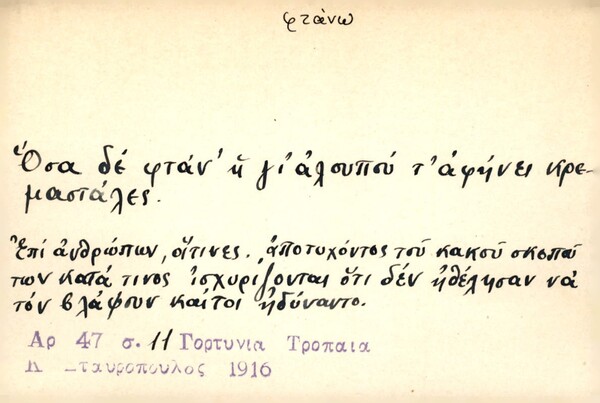 φτάνω
Ὅσα δέ φτάν' ἤ γι' ἀλουπού τ' ἀφήνει κρε-
μαστάλες.
Ἐπί ἀνθρώπων, οἵτινες, ἀποτυχόντος τοῦ κακοῦ σκοποῦ
των κατά τινος ἰσχυρίζονται ὅτι δέν ἠθέλησαν νά
τόν βλάψουν καίτοι ἠδύναντο.
Αρ 47 σ. 11 Γορτυνια Τροπαια
Κ Σταυροπουλος 1916